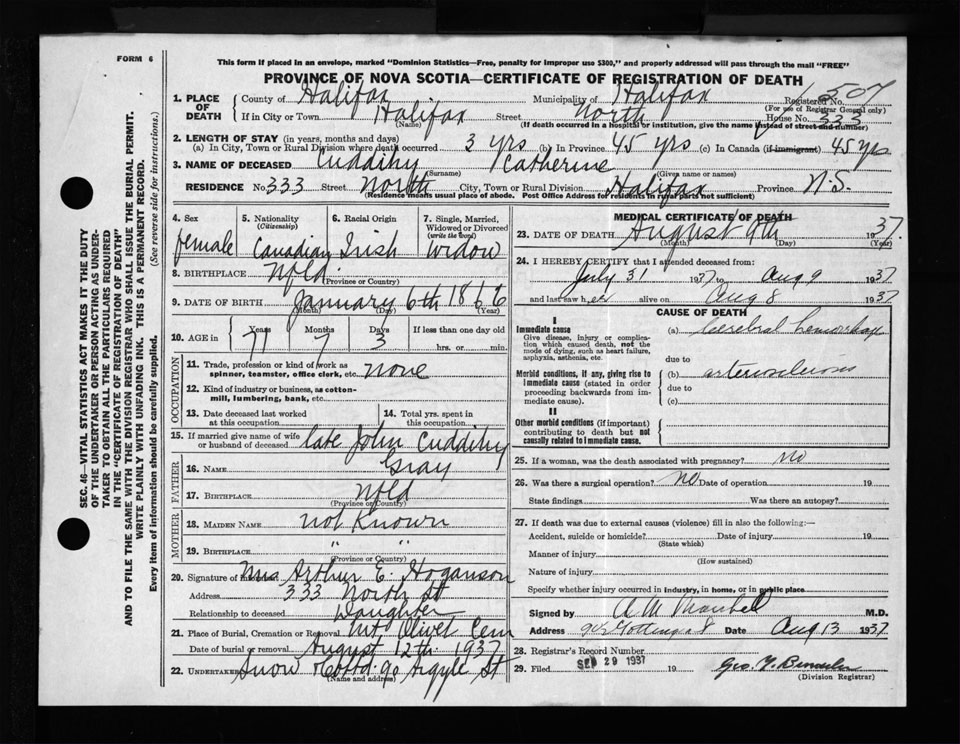 FORM 6
This form if placed in an envelope, marked "Dominion Statistics—Free, penalty for improper use $300," and properly addressed will pass through the mail "FREE"
PROVINCE OF NOVA SCOTIA—CERTIFICATE OF REGISTRATION OF DEATH
SEC. 46—VITAL STATISTICS ACT MAKES IT THE DUTY
OF THE UNDERTAKER OR PERSON ACTING AS UNDER-
TAKER TO OBTAIN ALL THE PARTICULARS REQUIRED
IN THE "CERTIFICATE OF REGISTRATION OF DEATH"
AND TO FILE THE SAME WITH THE DIVISION REGISTRAR WHO SHALL ISSUE THE BURIAL PERMIT.
WRITE PLAINLY WITH UNFADING INK. THIS IS A PERMANENT RECORD.
Every item of information should be carefully supplied. (See reverse side for instructions.)
1. PLACE OF DEATH County of Halifax Municipality of Halifax Registered No. 507
(For use of Registrar General only)
If in City or Town Halifax Street North House No. 333
(Name) (If death occurred in a hospital or institution, give the name instead of street and number)
2. LENGTH OF STAY (in years, months and days)
(a) In City, Town or Rural Division where death occurred 3 yrs (b) In Province 45 yrs (c) In Canada (if immigrant) 45 yrs
3. NAME OF DECEASED Cuddihy Catherine
(Surname) (Given name or names)
RESIDENCE No. 333 Street North City, Town or Rural Division Halifax Province N.S.
(Residence means usual place of abode. Post Office Address for residents in rural parts not sufficient)
4. Sex female
5. Nationality (Citizenship) Canadian
6. Racial Origin Irish
7. Single, Married, Widowed or Divorced (write the word) Widow
8. BIRTHPLACE Nfld.
(Province or Country)
9. DATE OF BIRTH January 6th 1866
(Month) (Day) (Year)
10. AGE in Years 71 Months 7 Days 3 If less than one day old hrs. or min.
OCCUPATION
11. Trade, profession or kind of work as spinner, teamster, office clerk, etc. none
12. Kind of industry or business, as cotton-mill, lumbering, bank, etc.
13. Date deceased last worked at this occupation
14. Total yrs. spent in this occupation
15. If married give name of wife or husband of deceased late John Cuddihy
FATHER
16. NAME Gray
17. BIRTHPLACE Nfld
(Province or Country)
MOTHER
18. MAIDEN NAME not Known
19. BIRTHPLACE " "
(Province or Country)
20. Signature of informant Mrs Arthur E. Hoganson
Address 333 North St
Relationship to deceased Daughter
21. Place of Burial, Cremation or Removal Mt. Olivet Cem
Date of burial or removal August 12th 1937
22. UNDERTAKER Snow & Co Ltd. 90 Argyle St
(Name and address)
MEDICAL CERTIFICATE OF DEATH
23. DATE OF DEATH August 9th 1937.
(Month) (Day) (Year)
24. I HEREBY CERTIFY that I attended deceased from:
July 31 1937 to Aug 9 1937
and last saw her alive on Aug 8 1937
CAUSE OF DEATH
I
Immediate cause
Give disease, injury or complication which caused death, not the mode of dying, such as heart failure, asphyxia, asthenia, etc.
(a) Cerebral hemorrhage
due to
Morbid conditions, if any, giving rise to immediate cause (stated in order proceeding backwards from immediate cause).
(b) arteriosclerosis
due to
(c)
II
Other morbid conditions (if important) contributing to death but not causally related to immediate cause.
25. If a woman, was the death associated with pregnancy? No
26. Was there a surgical operation? No Date of operation 19
State findings Was there an autopsy?
27. If death was due to external causes (violence) fill in also the following:—
Accident, suicide or homicide? Date of injury 19
(State which)
Manner of injury
(How sustained)
Nature of injury
Specify whether injury occurred in industry, in home, or in public place
Signed by M.D.
Address Date Aug 13 1937
28. Registrar's Record Number
29. Filed SEP 29 1937 19
(Division Registrar)